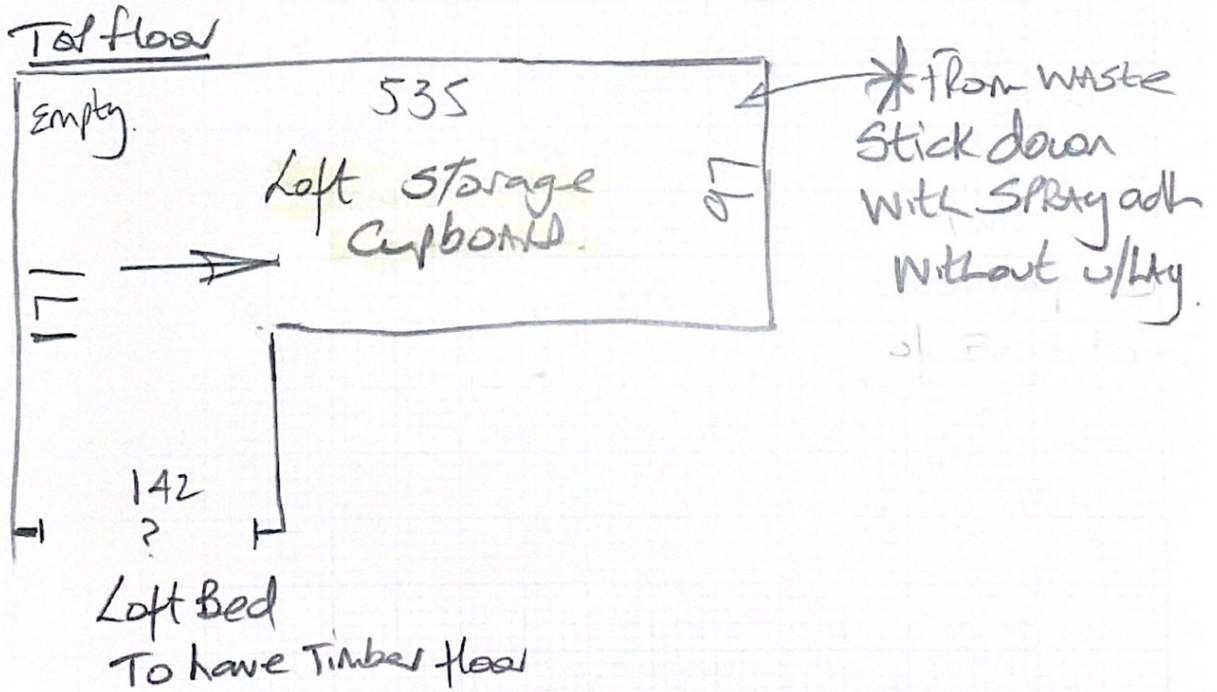 Top floor
Empty.
535
Loft Storage
Cupboard.
* From WASte
Stick down
With SPRAy adh
Without u/LAy.
142
?
Loft Bed
To have Timber floor